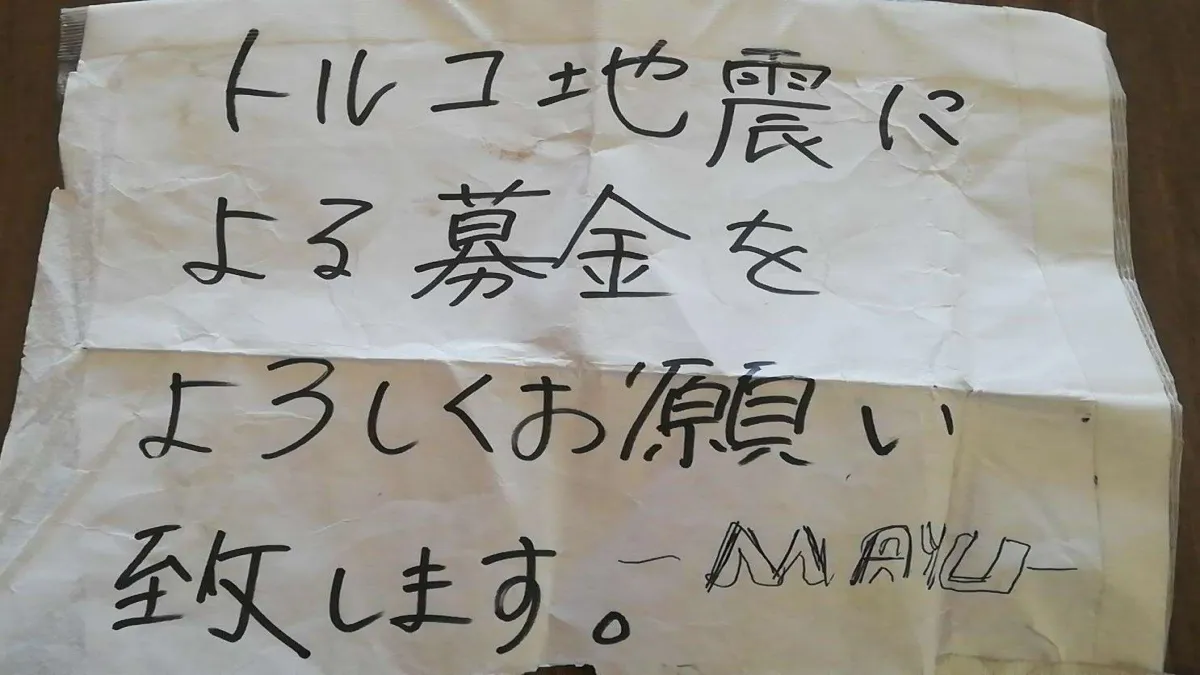 トルコ地震に
よる募金を
よろしくお願い
致します。
-MAYU-